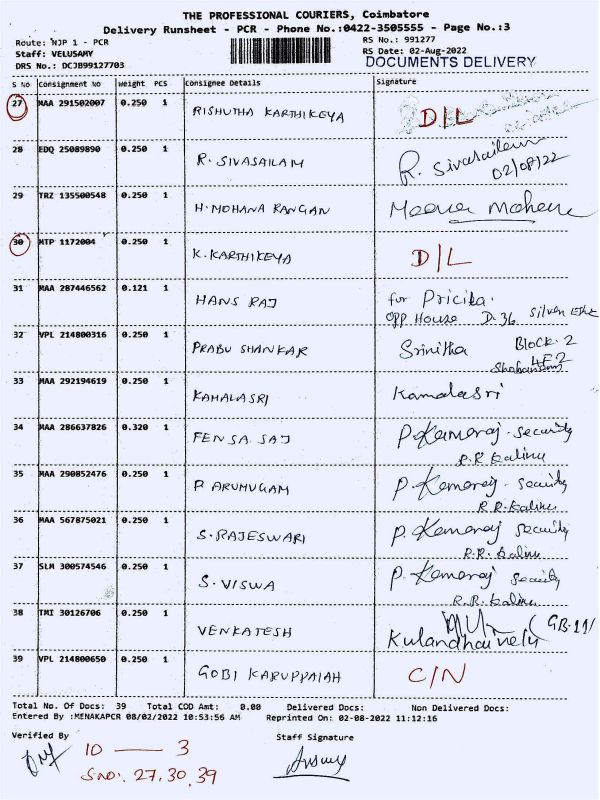 THE PROFESSIONAL COURIERS, Coimbatore
Delivery Runsheet - PCR - Phone No.:0422-3505555 - Page No.:3
Route: NJP 1 - PCR RS No.: 991277
Staff: VELUSAMY RS Date: 02-Aug-2022
DRS No.: DCJB99127703 DOCUMENTS DELIVERY
S No Consignment No Weight PCS Consignee Details Signature
27 MAA 291502007 0.250 1 RISHUTHA KARTHIKEYA D/L
28 EDQ 25089890 0.250 1 R. SIVASAILAM R. Sivasailam
02/08/22
29 TRZ 135500548 0.250 1 H. MOHANA RANGAN Meena Mohan
30 MTP 1172004 0.250 1 K. KARTHIKEYA D/L
31 MAA 287446562 0.121 1 HANS RAJ for Pricika.
opp House D.36 Silver
32 VPL 214800316 0.250 1 PRABU SHANKAR Srinitha Block-2
4F2
33 MAA 292194619 0.250 1 KAMALASRI Kamalasri
34 MAA 286637826 0.320 1 FENSA SAJ P. Kamaraj - Security
R.R.
35 MAA 290852476 0.250 1 P ARUMUGAM P. Kamaraj - Security
R.R.
36 MAA 567875021 0.250 1 S. RAJESWARI P. Kamaraj Security
R.R.
37 SLM 300574546 0.250 1 S. VISWA P. Kamaraj Security
R.R.
38 TMI 30126706 0.250 1 VENKATESH
Kulandhaivelu
39 VPL 214800650 0.250 1 GOBI KARUPPAIAH C/N
Total No. Of Docs: 39 Total COD Amt: 0.00 Delivered Docs: Non Delivered Docs:
Entered By :MENAKAPCR 08/02/2022 10:53:56 AM Reprinted On: 02-08-2022 11:12:16
Verified By Staff Signature
10 — 3
S.NO: 27,30,39